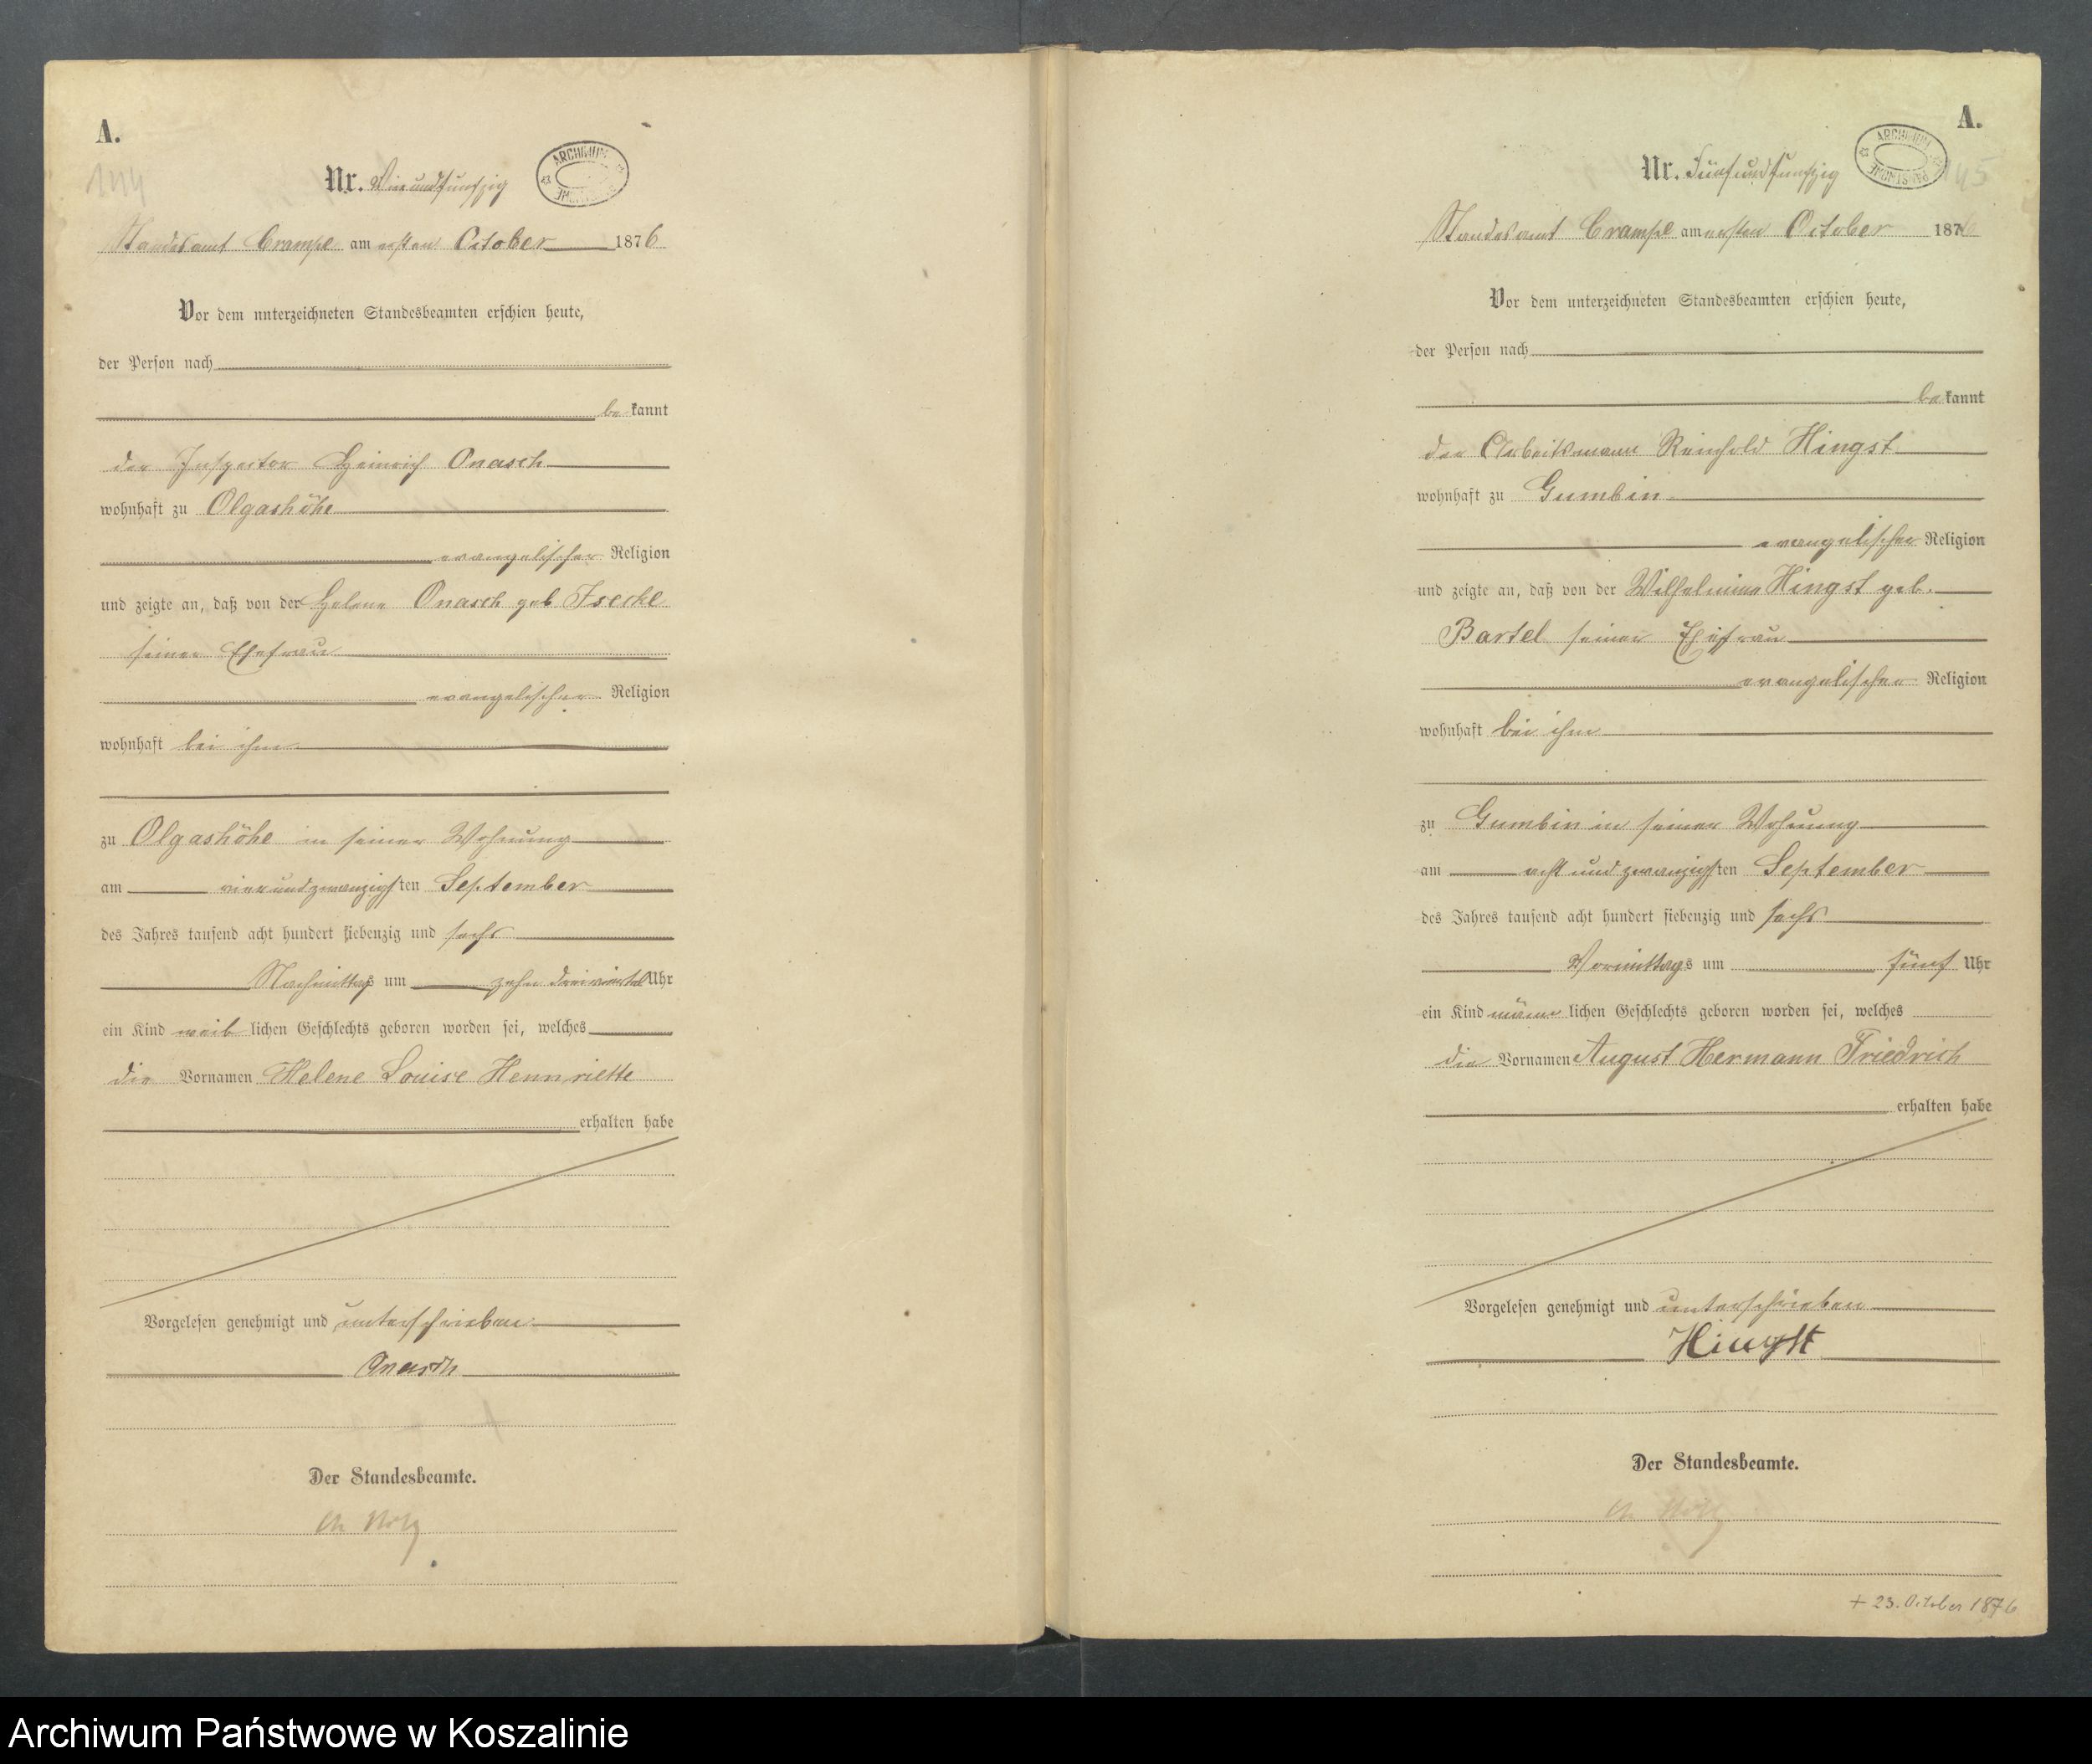 A.
144
Nr. Vierundfunfzig
ARCHIWUM
Standesamt Crampe am ersten October 1876
Vor dem unterzeichneten Standesbeamten erschien heute,
der Person nach
be kannt
der Inspector Heinrich Onasch
wohnhaft zu Olgashöhe
evangelischer Religion
und zeigte an, daß von der Helene Onasch geb
seiner Ehefrau
evangelischer Religion
wohnhaft bei ihm
zu Olgashöhe in seiner Wohnung
am vierundzwanzigsten September
des Jahres tausend acht hundert siebenzig und sechs
Nachmittags um zehn dreiviertel Uhr
ein Kind weib lichen Geschlechts geboren worden sei, welches
die Vornamen Helene Louise Hennriette
erhalten habe
Vorgelesen genehmigt und unterschrieben
Onasch
Der Standesbeamte.
A.
145
Nr. Fünfundfunfzig
ARCHIWUM
Standesamt Crampe am ersten October 1876
Vor dem unterzeichneten Standesbeamten erschien heute,
der Person nach
be kannt
der Arbeitsmann Reinhold Hingst
wohnhaft zu Gumbin
evangelischer Religion
und zeigte an, daß von der Wilhelmine Hingst geb.
Bartel seiner Ehefrau
evangelischer Religion
wohnhaft bei ihm
zu Gumbin in seiner Wohnung
am acht und zwanzigsten September
des Jahres tausend acht hundert siebenzig und sechs
Vormittags um fünf Uhr
ein Kind männ lichen Geschlechts geboren worden sei, welches
die Vornamen August Hermann Friedrich
erhalten habe
Vorgelesen genehmigt und unterschrieben
Hingst
Der Standesbeamte.
+ 23. October 1876
Archiwum Państwowe w Koszalinie